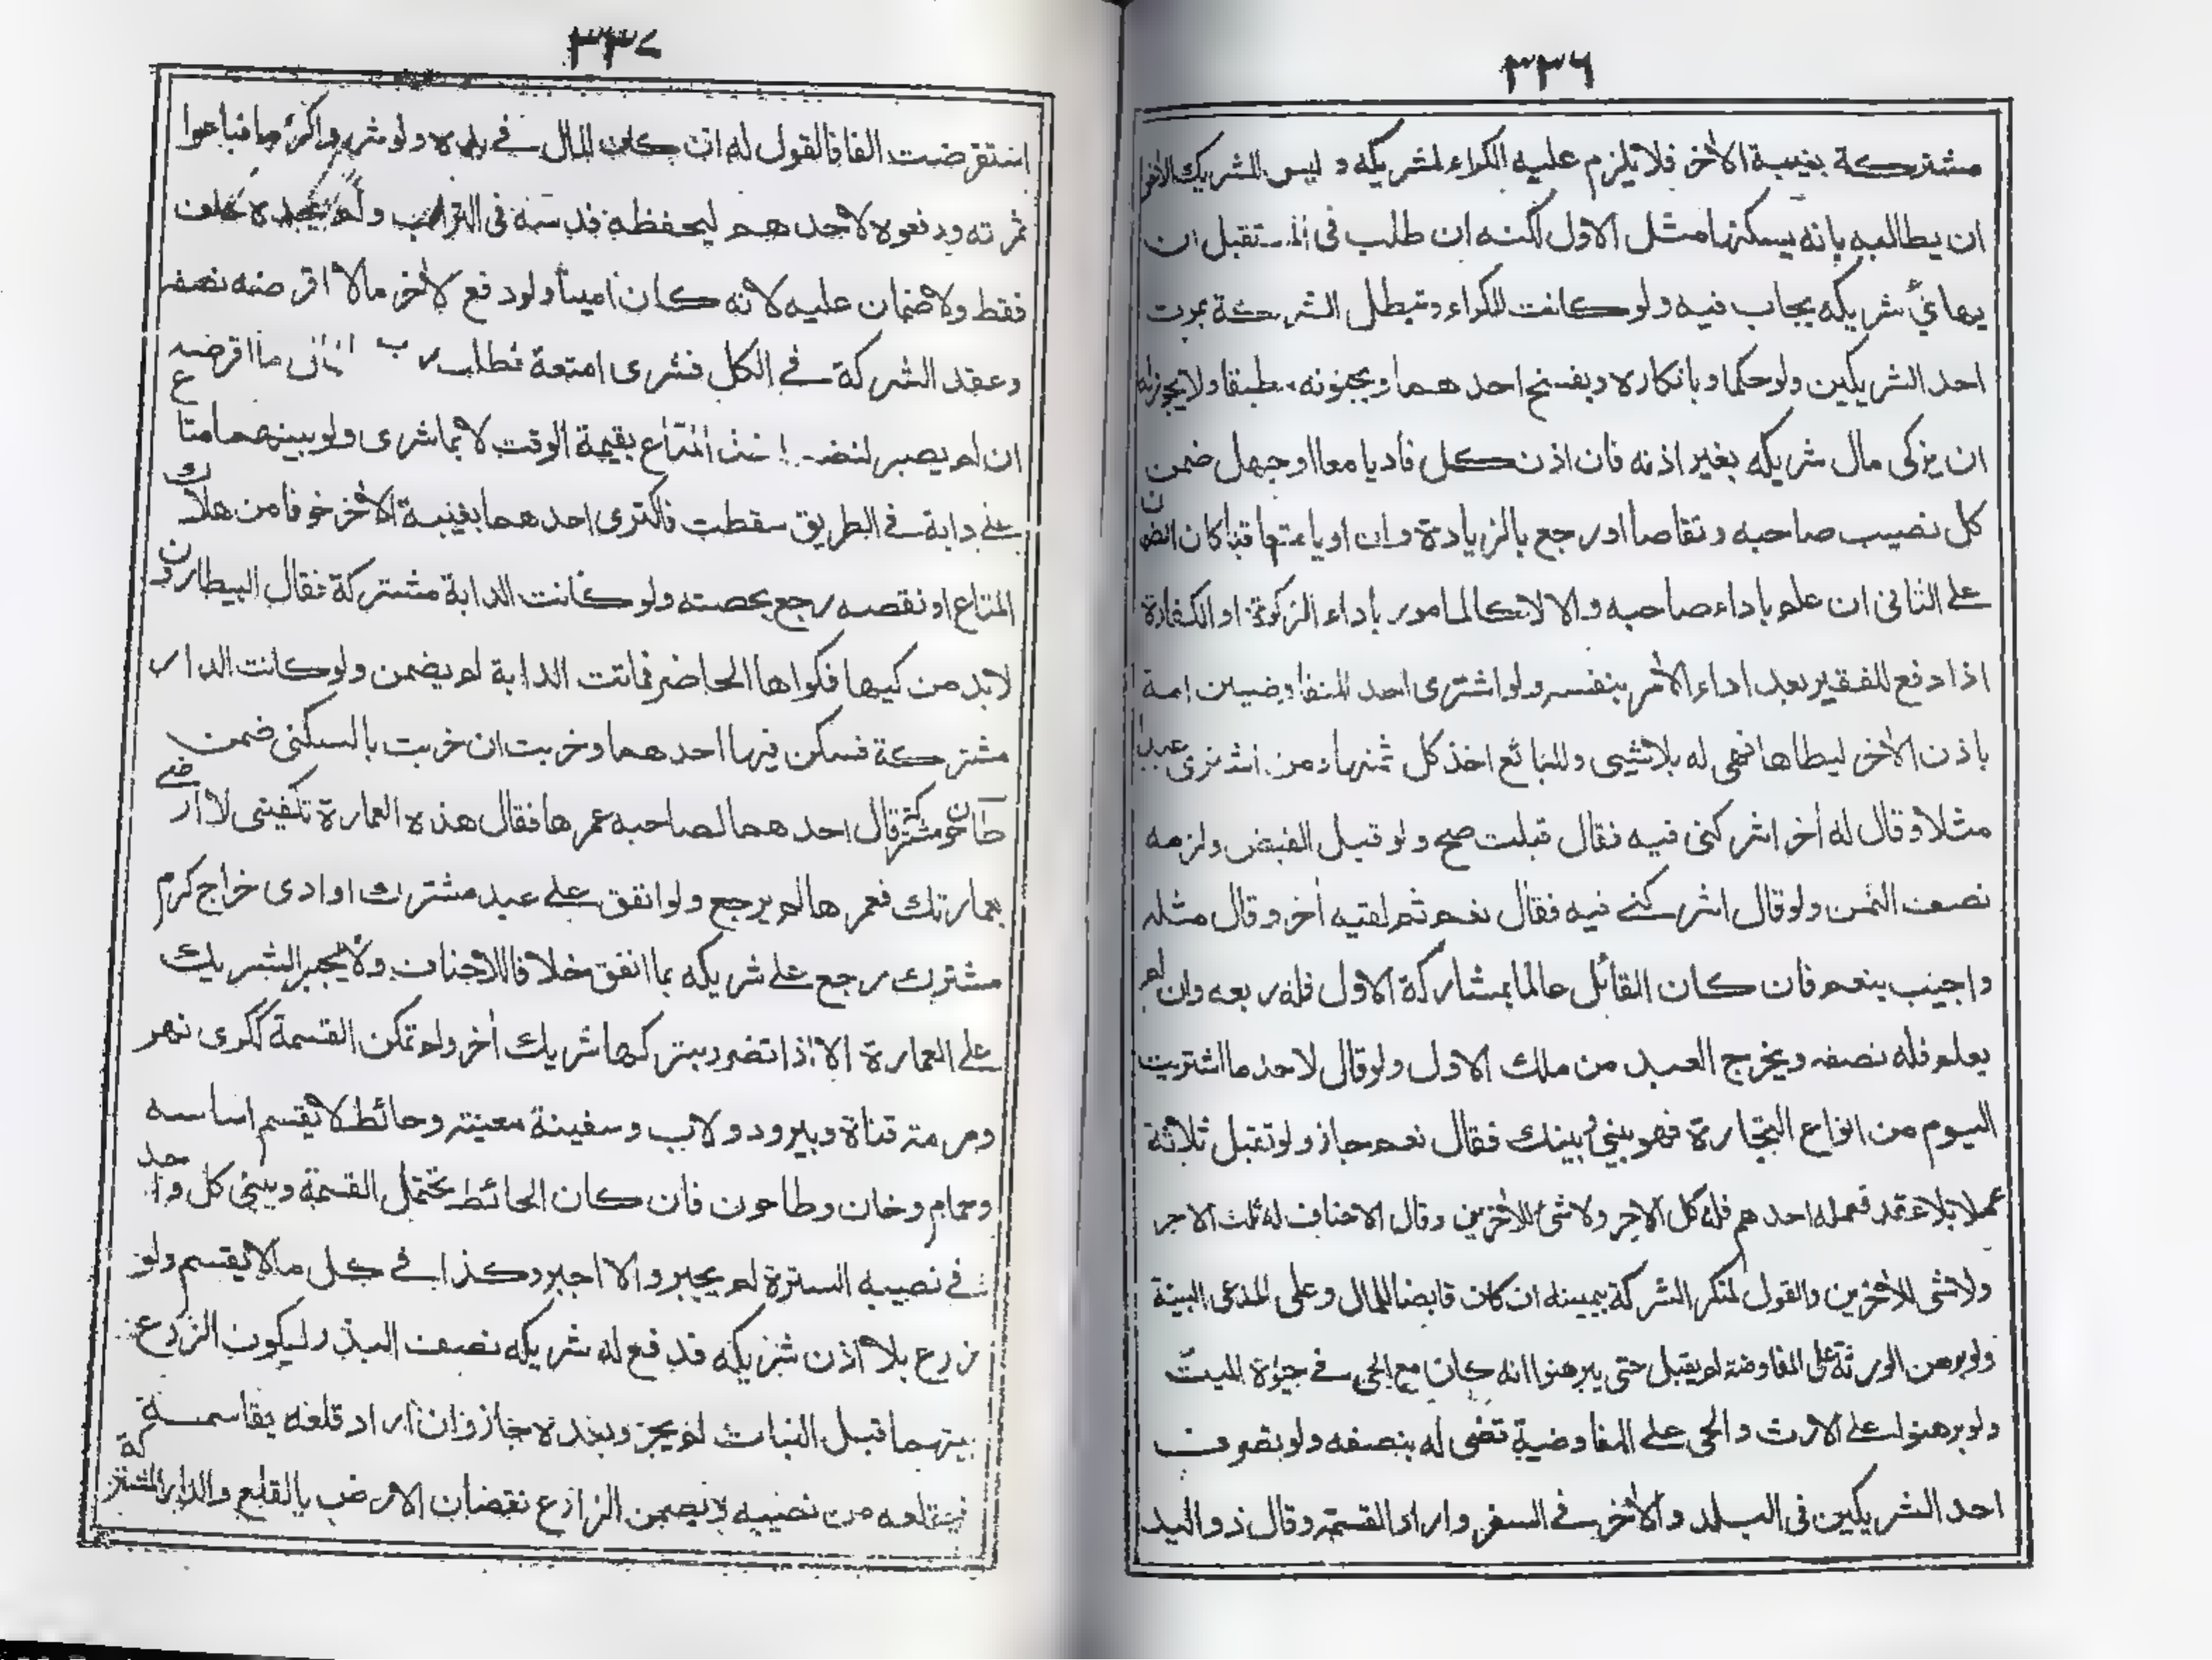 ٣٣٦
مشتركة بغيبة الأخر فلا يلزم عليه الكراء لشريكه و ليس للشريك الأخر
ان يطالبه بانه يسكنها مثل الاول لكنه ان طلب فى المستقبل ان
يهايئ شريكه يجاب فيه ولو كانت للكراء وتبطل الشركة بموت
احد الشريكين ولو حكما و بانكاره وبفسخ احد هما وبجنونه مطبقا ولا يجوز له
ان يزكى مال شريكه بغير اذنه فان اذن كل فأديا معا او جهل ضمن
كل نصيب صاحبه و تقاصا او رجع بالزيادة وان اديا متعاقبا كان الضمان
على الثانى ان علم باداء صاحبه و الا لا كالمامور بأداء الزكوة او الكفارة
اذا دفع للفقير بعد اداء الأمر بنفسه ولو اشترى احد المتفاوضين امة
باذن الأخر ليطاها فهى له بلاشيى وللبائع اخذ كل ثمنها ومن اشترى عبدا
مثلا وقال له أخر اشركنى فيه فقال قبلت صح و لو قبل القبض ولزمه
نصف الثمن ولو قال اشركنى فيه فقال نعم ثم لقيه أخر وقال مثله
واجيب بنعم فان كان القائل عالما بمشاركة الاول فله ربعه وان لم
يعلم فله نصفه ويخرج العبد من ملك الاول ولو قال لاحد ما اشتريت
اليوم من انواع التجارة فهو بينى وبينك فقال نعم جاز ولو تقبل ثلاثة
عملا بلا عقد فعمله احد هم فله كل الاجر ولاشئ للأخرين وقال الاحناف له ثلث الاجر
ولاشى للأخرين والقول لمنكر الشركة بيمينه ان كان قابضا للمال وعلى المدعى البينة
ولو برهن الورثة على المفاوضة لم يقبل حتى يبرهنوا انه كان مع الحى فى حيوة الميت
ولو برهنوا على الارث والحى على المفاوضية قضى له بنصفه ولو تصرف
احد الشريكين فى البلد والأخر فى السفر واراد القسمة وقال ذو اليد
٣٣٧
استقرضت الفا فالقول له ان كان المال فى يده ولو شر واكرما فباعوا
ثمرته ودفعوه لاحد هم ليحفظه فدسه فى التراب ولم يجده حلف
فقط ولا ضمان عليه لانه كان امينا ولو دفع لأخر مالا اقرضه نصفه
وعقد الشركة فى الكل فشرى امتعة فطلب رب المال ما اقرضه
ان لم يصبر لنض اخذ المتاع بقيمة الوقت لا بما شرى ولو بينهما متاع
على دابة فى الطريق سقطت فاكترى احد هما بغيبة الأخر خوفا من هلاك
المتاع او نقصه رجع بحصته ولو كانت الدابة مشتركة فقال البيطارون
لابد من كيها فكواها الحاضر فماتت الدابة لم يضمن ولو كانت الدار
مشتركة فسكن فيها احد هما وخربت ان خربت بالسكنى ضمن
طاحون مشتركة قال احد هما لصاحبه عمرها فقال هذه العمارة تكفينى لا ارضى
بعمارتك فعمرها لم يرجع ولو انفق على عبد مشترك او ادى خراج كرم
مشترك رجع على شريكه بما انفق خلافا للاحناف ولا يجبر الشريك
على العمارة الا اذا تضرر بتركها شريك أخر ولم تمكن القسمة ككرى نهر
ومرمة قناة وبير ودولاب وسفينة معينة وحائط لا يقسم اساسه
وحمام وخان وطاحون فان كان الحائط يحتمل القسمة ويبنى كل واحد
فى نصيبه السترة لم يجبر والا اجبر وكذا فى كل مالا يقسم ولو
زرع بلا اذن شريكه فدفع له شريكه نصف البذر ليكون الزرع
بينهما قبل النبات لم يجز وبعده جاز وان اراد قلعه يقاسمه
فيقلعه من نصيبه ويضمن الزارع نقصان الارض بالقلع والدار المشتركة